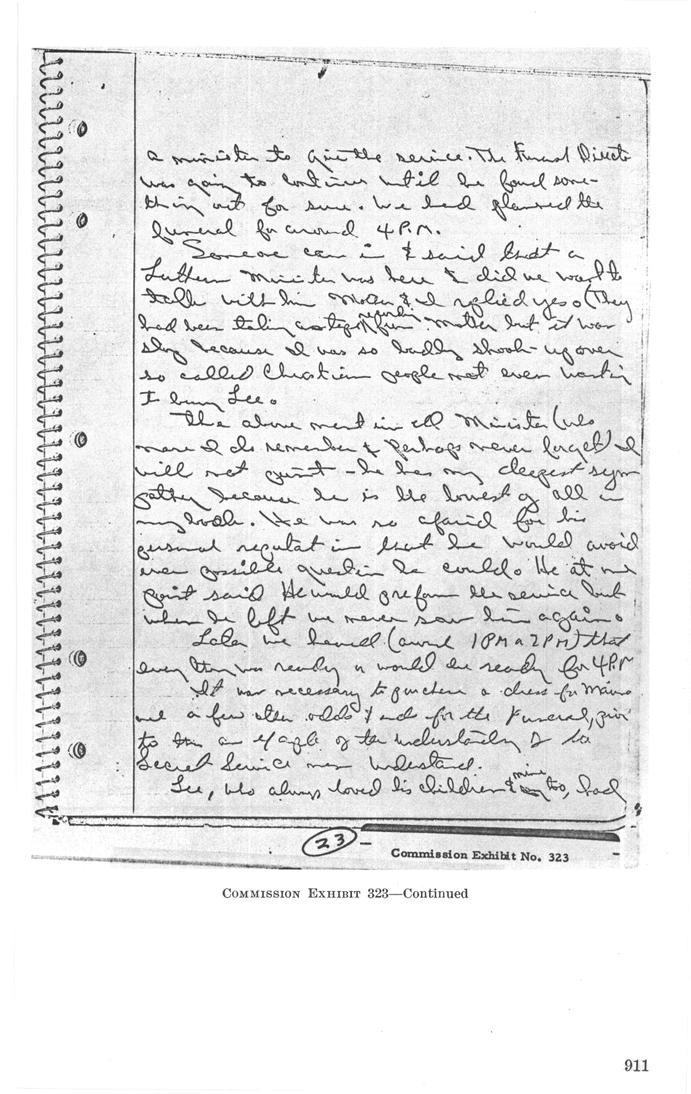 a minister to give the service. The Funeral Director
was going to continue until he found some-
thing out for sure. We had planned the
funeral for around 4 P.M.
Someone came in & said that a
Luthern Minister was here & did we want to
talk with him Mother & I replied yes. (They
had been taking a step
Mother but it was
slop because I was so badly shook-up over
so called Christian people not even wanting
to bury Lee.
The above mention ed Minister (who
name I do remember & perhaps never forget) I
will not print - he has my deepest sym
pathey because he is the lowest of all in
my book. He was so afraid for his
personal reputation that he would avoid
ever possible question he could. He at one
point said He would preform the service but
when he left we never saw him again.
Later we heard (around 1 PM or 2 PM) that
everything was ready or would be ready for 4 PM
It was necessary to purchase a dress for Marina
and a few other odds & ends for the Funeral, prior
to this an example of the understanding I
Secret Service men understand.
Lee, who always loved his children & mine too, had
23 -
Commission Exhibit No. 323
COMMISSION EXHIBIT 323—Continued
911